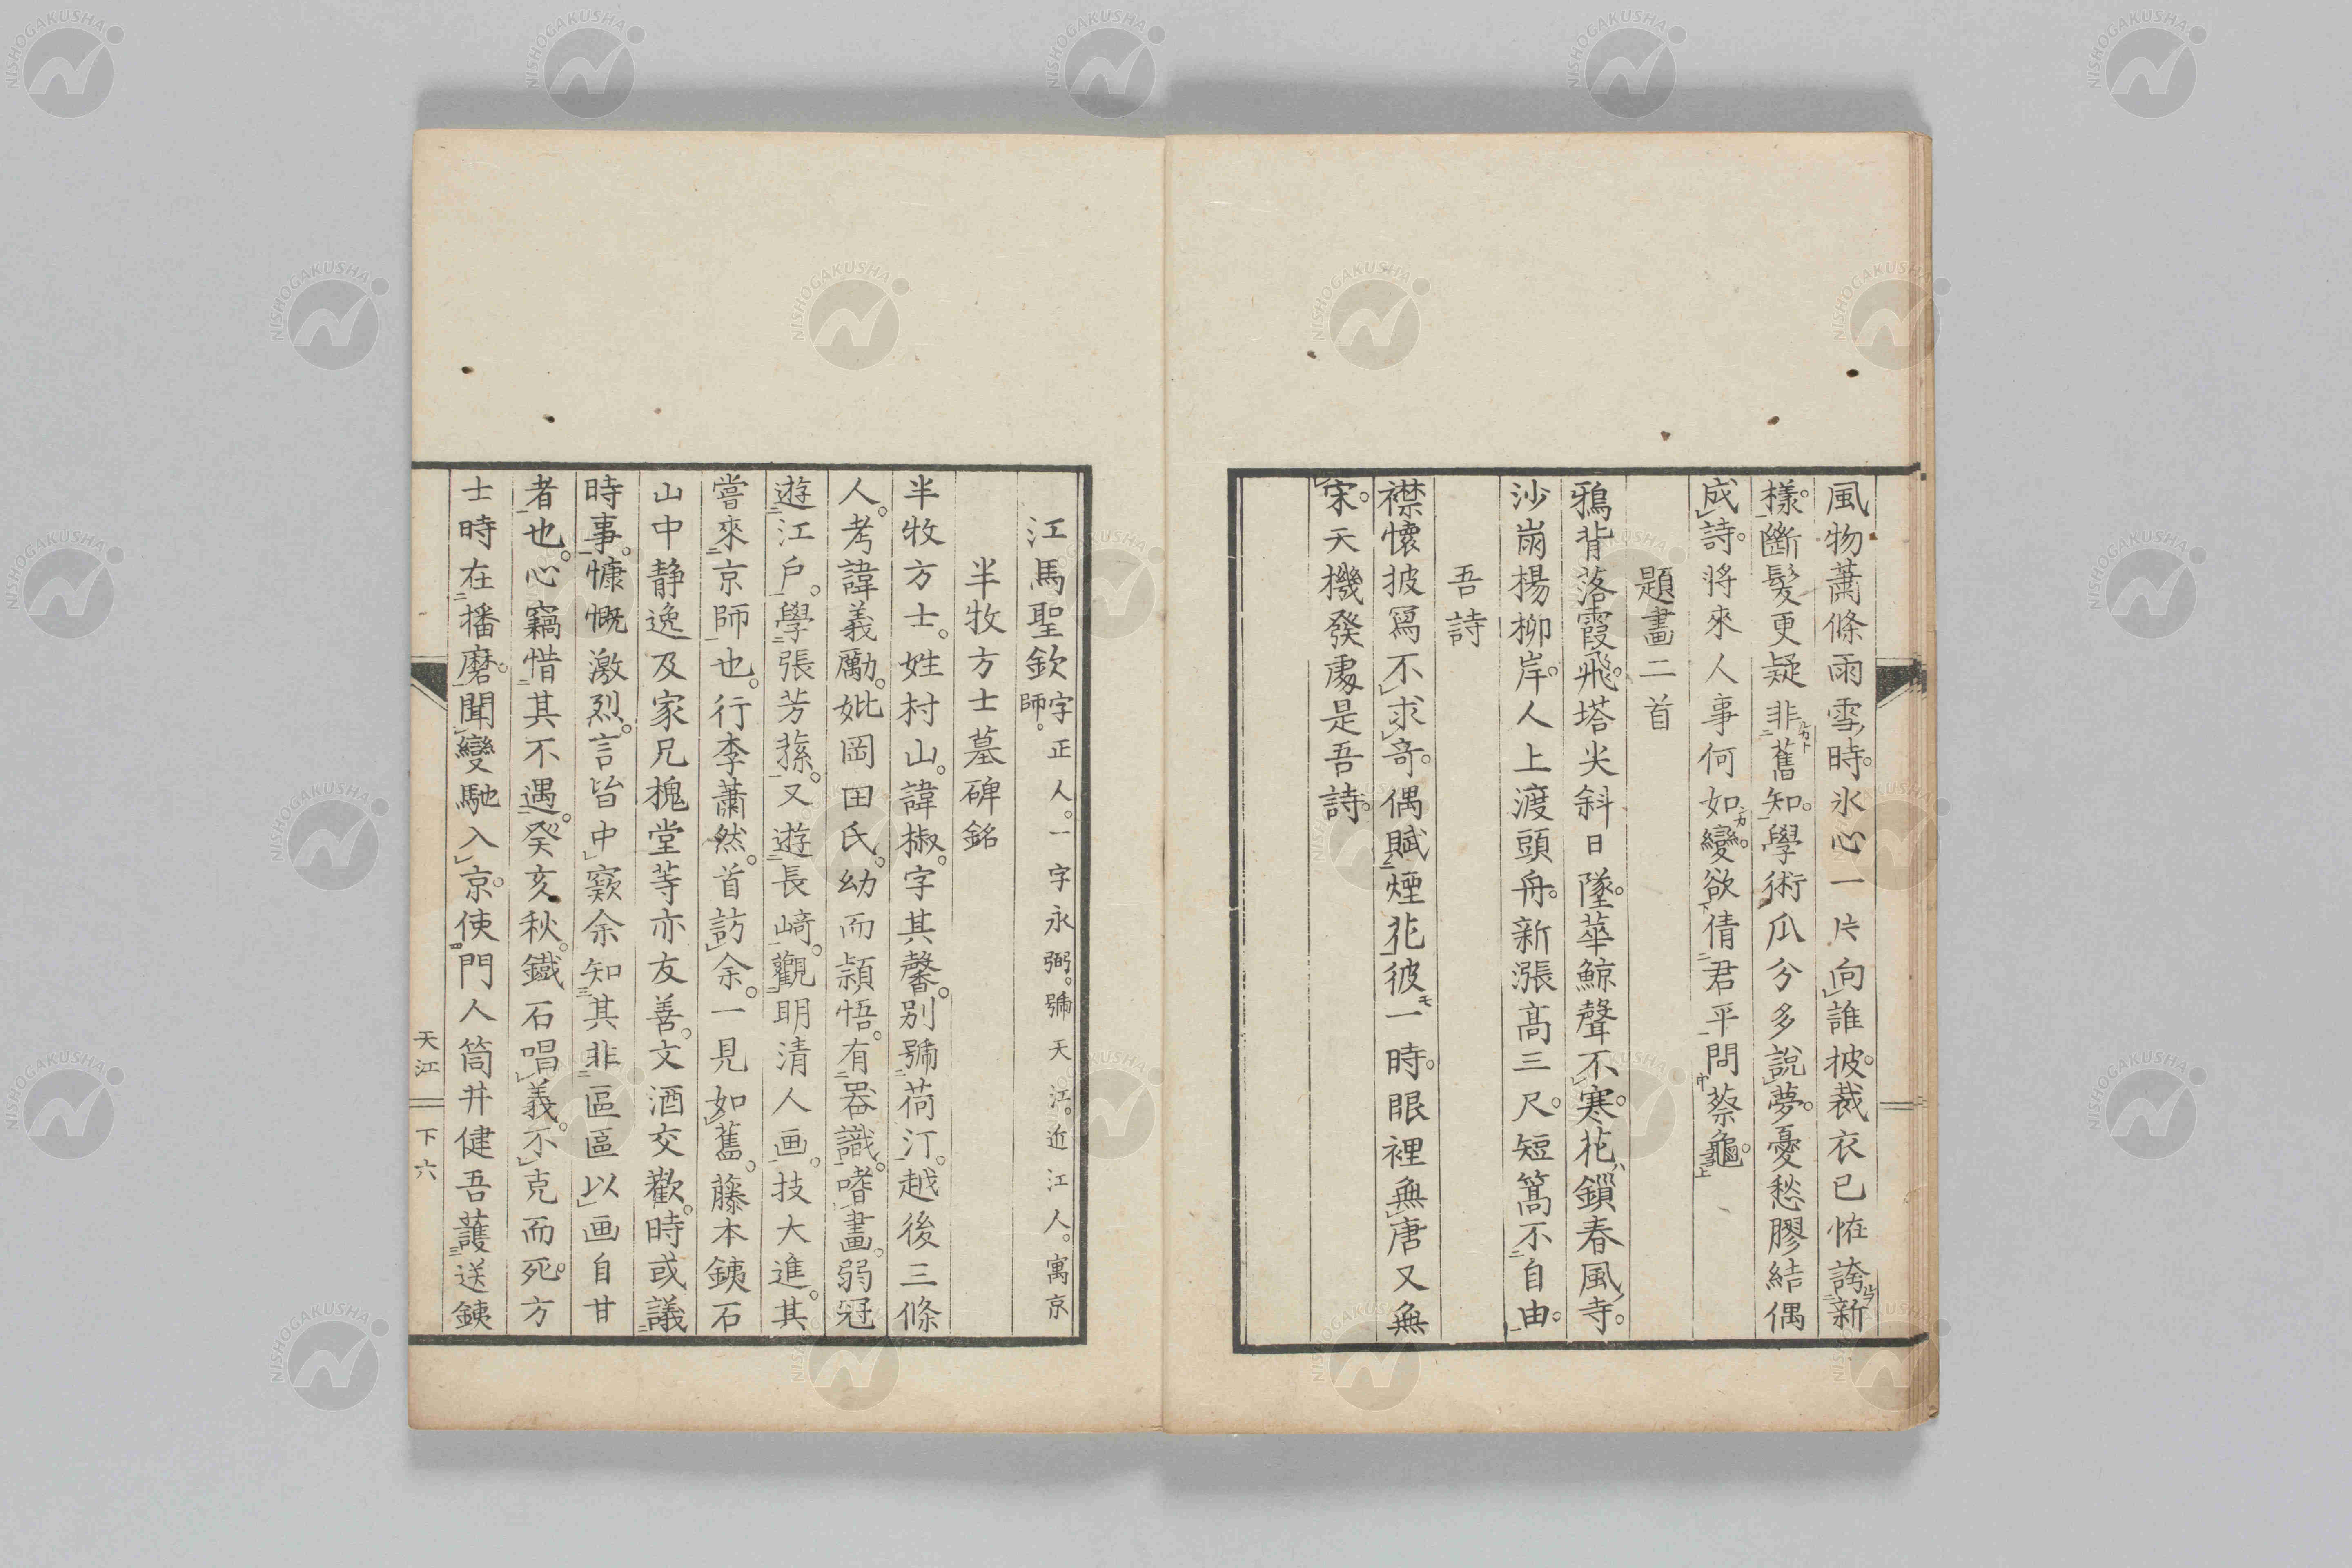 風物蕭條雨雪時。氷心一片向誰披。裁衣已恠誇新
樣。斷髪更疑非舊知。學術瓜分多説夢。憂愁膠結偶
成詩。將來人事何如變。欲倩君平問蔡龜。
題畫二首
鴉背落霞飛。塔尖斜日墜。華鯨聲不寒。花鎖春風寺。
沙崩楊柳岸。人上渡頭舟。新漲高三尺。短篙不自由。
吾詩
襟懷披寫不求奇。偶賦煙花彼一時。眼裡無唐又無
宋。天機發處是吾詩。
江馬聖欽字正人。一字永弼。號天江。近江人。寓京師。
半牧方士墓碑銘
半牧方士。姓村山。諱椒。字其馨。別號荷汀。越後三條
人。考諱義勵。妣岡田氏。幼而頴悟。有器識。嗜畫。弱冠
遊江戶。學張芳蓀。又遊長﨑。觀明清人画。技大進。其
嘗來京師也。行李蕭然。首訪余。一見如舊。藤本銕石
山中静逸及家兄槐堂等亦友善。文酒交歡。時或議
時事。慷慨激烈。言皆中窾余知其非區區以画自甘
者也。心竊惜其不遇。癸亥秋。鐵石唱義。不克而死。方
士時在播磨。聞變馳入京。使門人筒井健吾護送銕
天江 下 六
NISHOGAKUSHA